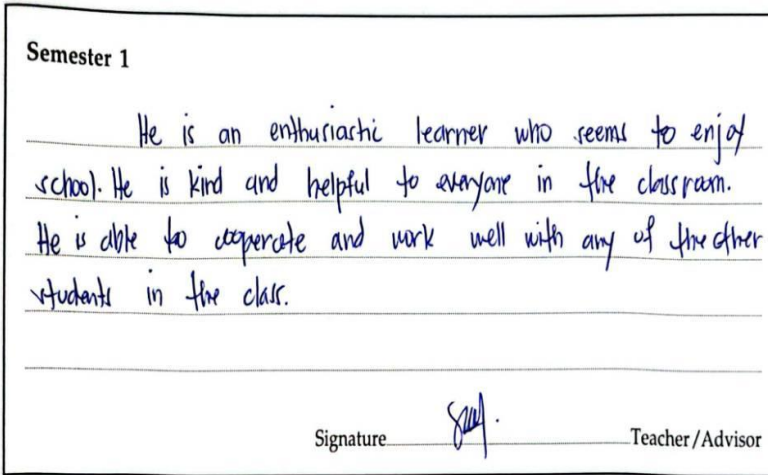 Semester 1
He is an enthusiastic learner who seems to enjoy
school. He is kind and helpful to everyone in the classroom.
He is able to cooperate and work well with any of the other
students in the class.
Signature Teacher/Advisor